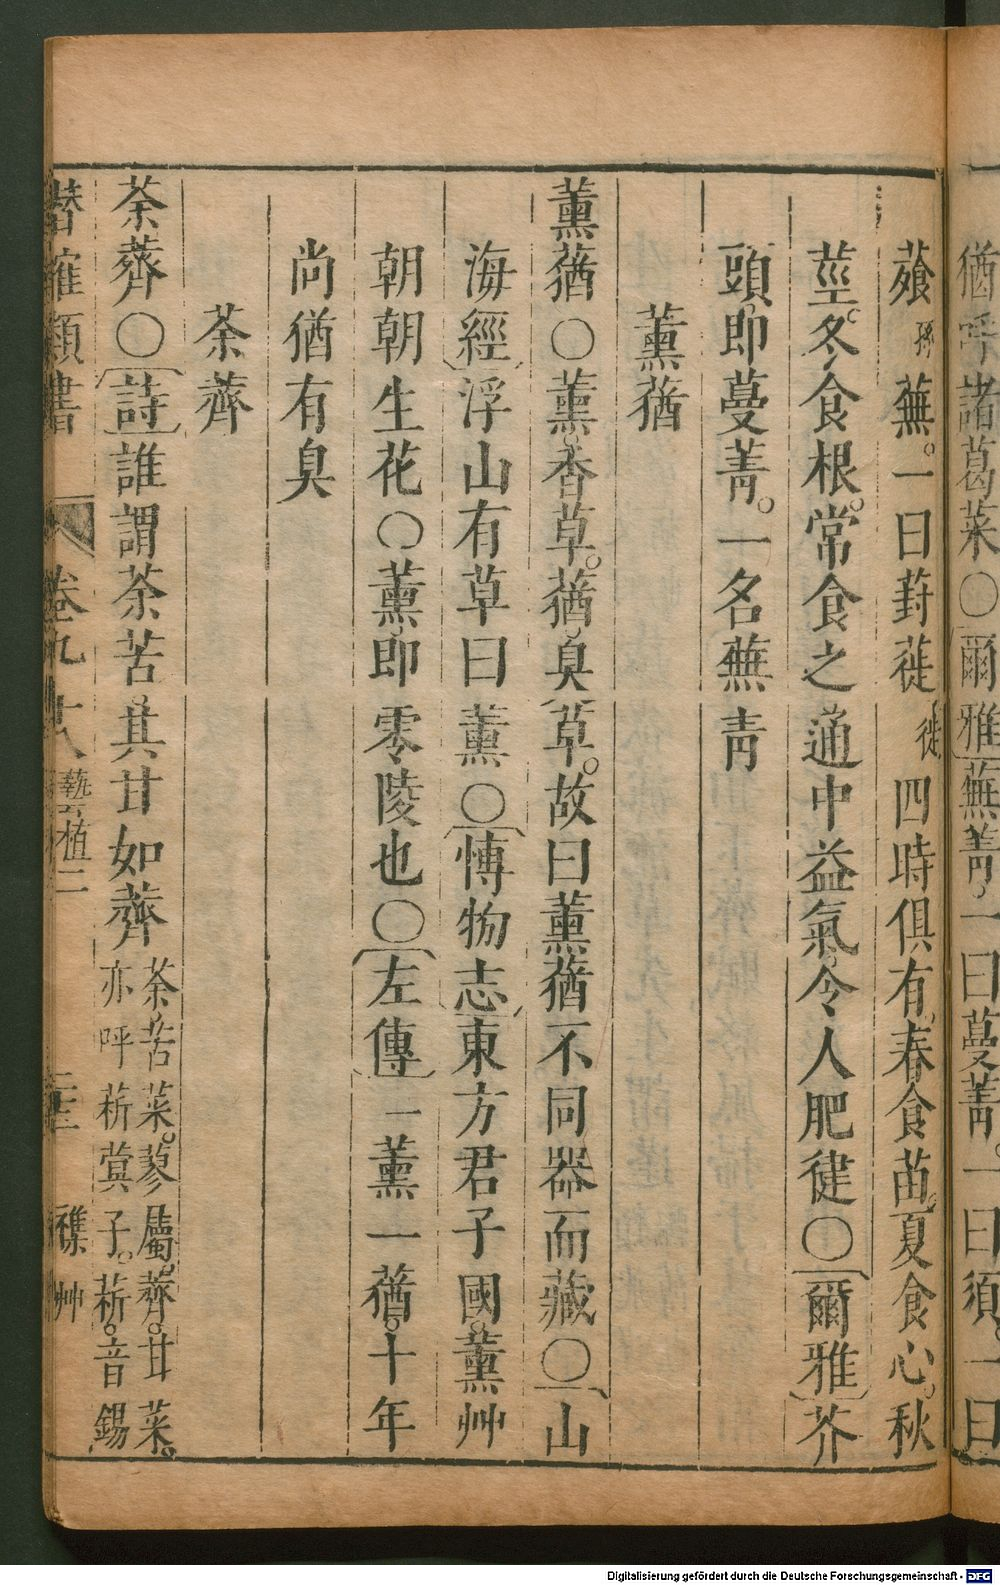 猶呼諸葛菜〇爾雅蕪菁一曰蔓菁。一曰須。一曰
薞孫蕪。一曰葑蓰徙四時俱有春食苗。夏食心。秋食
莖。冬食根。常食之通中益氣。令人肥健〇爾雅芥
頭即蔓菁。一名蕪菁
薰蕕
薰蕕〇薰香草。蕕臭草。故曰薰蕕不同器而藏〇山
海經浮山有草曰薰〇博物志東方君子國。薰艸
朝朝生花〇薰即零陵也〇左傳一薰一蕕。十年
尚猶有臭
荼薺
荼薺〇詩誰謂荼苦其甘如薺
荼苦菜。蓼屬。薺。甘菜。
亦呼菥蓂子。菥。音錫
類書
卷九十八
藝植二
二十三
襍艸
Digitalisierung gefördert durch die Deutsche Forschungsgemeinschaft - DFG